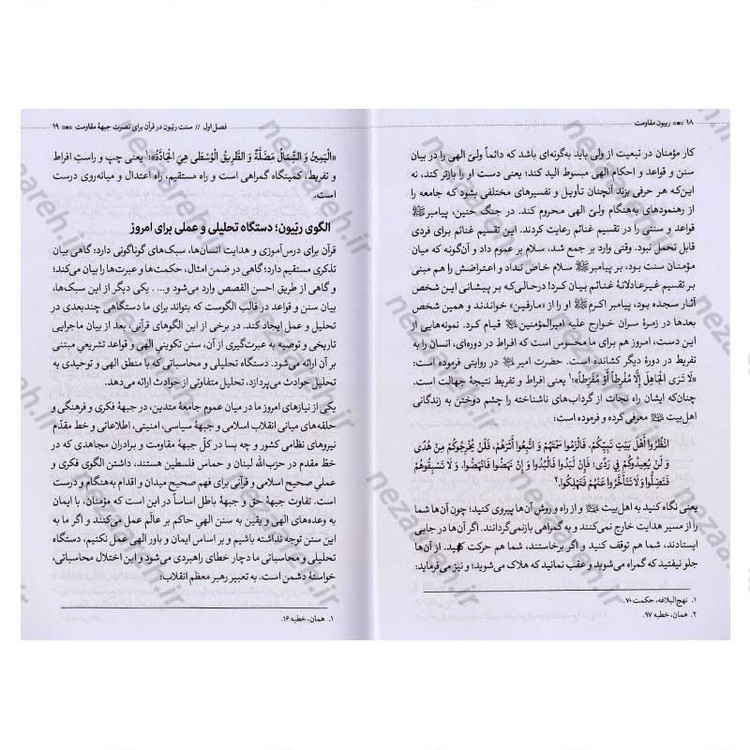 ۱۸ ربیون مقاومت
کار مؤمنان در تبعیت از ولیّ باید به‌گونه‌ای باشد که دائماً ولیّ الهی را در بیان
سنن و قواعد و احکام الهی مبسوط الید کند؛ یعنی دست او را بازتر کند، نه
این‌که هر حرفی بزند آنچنان تأویل و تفسیرهای مختلفی بشود که جامعه را
از رهنمودهای به‌هنگام ولیّ الهی محروم کند. در جنگ حنین، پیامبر ﷺ
قواعد و سننی را در تقسیم غنائم رعایت کردند. این تقسیم غنائم برای فردی
قابل تحمل نبود. وقتی وارد بر جمع شد، سلام بر عموم داد و آن‌گونه که میان
مؤمنان سنت بود، بر پیامبر ﷺ سلام خاص نداد و اعتراضش را هم مبنی
بر تقسیم غیرعادلانهٔ غنائم بیان کرد! درحالی‌که بر پیشانی این شخص
آثار سجده بود، پیامبر اکرم ﷺ او را از «مارقین» خواندند و همین شخص
بعدها در زمرهٔ سران خوارج علیه امیرالمؤمنین قیام کرد. نمونه‌هایی از
این دست، امروز هم برای ما محسوس است که افراط در دوره‌ای، انسان را به
تفریط در دورهٔ دیگر کشانده است. حضرت امیر در روایتی فرموده است:
«لَا تَرَى الْجَاهِلَ إِلَّا مُفْرِطاً أَوْ مُفَرِّطاً»؛۱ یعنی افراط و تفریط نتیجهٔ جهالت است.
چنان‌که ایشان راه نجات از گرداب‌های ناشناخته را چشم دوختن به زندگانی
اهل‌بیت معرفی کرده و فرموده است:
انْظُرُوا أَهْلَ بَيْتِ نَبِيِّكُمْ، فَالْزَمُوا سَمْتَهُمْ وَ اتَّبِعُوا أَثَرَهُمْ، فَلَنْ يُخْرِجُوكُمْ مِنْ هُدًى
وَ لَنْ يُعِيدُوكُمْ فِي رَدًى؛ فَإِنْ لَبَدُوا فَالْبُدُوا وَ إِنْ نَهَضُوا فَانْهَضُوا، وَ لَا تَسْبِقُوهُمْ
فَتَضِلُّوا وَ لَا تَتَأَخَّرُوا عَنْهُمْ فَتَهْلِكُوا.۲
یعنی نگاه کنید به اهل‌بیت و از راه و روش آن‌ها پیروی کنید؛ چون آن‌ها شما
را از مسیر هدایت خارج نمی‌کنند و به گمراهی بازنمی‌گردانند. اگر آن‌ها در جایی
ایستادند، شما هم توقف کنید و اگر برخاستند، شما هم حرکت کنید. از آن‌ها
جلو نیفتید که گمراه می‌شوید و عقب نمانید که هلاک می‌شوید؛ و نیز می‌فرماید:
۱. نهج‌البلاغه، حکمت ۷۰.
۲. همان، خطبه ۹۷.
فصل اول // سنت ربّیون در قرآن برای نصرت جبههٔ مقاومت ۱۹
«الْيَمِينُ وَ الشِّمَالُ مَضَلَّةٌ وَ الطَّرِيقُ الْوُسْطَى هِيَ الْجَادَّةُ»؛۱ یعنی چپ و راستِ افراط
و تفریط، کمینگاه گمراهی است و راه مستقیم، راه اعتدال و میانه‌روی درست
است.
الگوی ربّیون؛ دستگاه تحلیلی و عملی برای امروز
قرآن برای درس‌آموزی و هدایت انسان‌ها، سبک‌های گوناگونی دارد: گاهی بیان
تذکری مستقیم دارد؛ گاهی در ضمن امثال، حکمت‌ها و عبرت‌ها را بیان می‌کند؛
و گاهی از طریق احسن القصص وارد می‌شود و... . یکی دیگر از این سبک‌ها،
بیان سنن و قواعد در قالب الگوست که بتواند برای ما دستگاهی چندبعدی در
تحلیل و عمل ایجاد کند. در برخی از این الگوهای قرآنی، بعد از بیان ماجرایی
تاریخی و توصیه به عبرت‌گیری از آن، سنن تکوینیِ الهی و قواعد تشریعیِ مبتنی
بر آن ارائه می‌شود. دستگاه تحلیلی و محاسباتی که با منطق الهی و توحیدی به
تحلیل حوادث می‌پردازد، تحلیل متفاوتی از حوادث ارائه می‌دهد.
یکی از نیازهای امروز ما در میان عموم جامعهٔ متدین، در جبههٔ فکری و فرهنگی و
حلقه‌های میانی انقلاب اسلامی و جبههٔ سیاسی، امنیتی، اطلاعاتی و خط مقدّم
نیروهای نظامی کشور و چه بسا در کلّ جبههٔ مقاومت و برادران مجاهدی که در
خط مقدم در حزب‌الله لبنان و حماس فلسطین هستند، داشتن الگوی فکری و
عملیِ صحیح اسلامی و قرآنی برای فهم صحیح میدان و اقدام به‌هنگام و درست
است. تفاوت جبههٔ حق و جبههٔ باطل اساساً در این است که مؤمنان، با ایمان
به وعده‌های الهی و یقین به سنن الهیِ حاکم بر عالَم عمل می‌کنند و اگر ما به
این سنن توجه نداشته باشیم و بر اساس ایمان و باور الهی عمل نکنیم، دستگاه
تحلیلی و محاسباتی ما دچار خطای راهبردی می‌شود و این اختلال محاسباتی،
خواستهٔ دشمن است. به تعبیر رهبر معظم انقلاب:
۱. همان، خطبه ۱۶.
nezaareh.ir